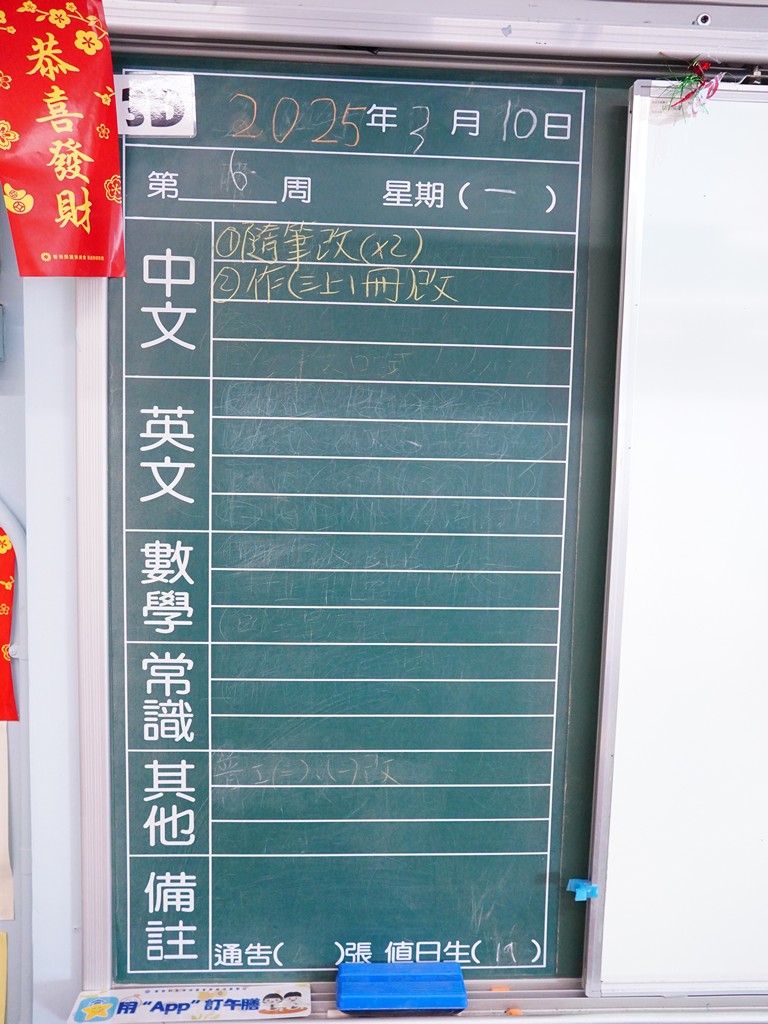 恭喜發財
3D
2025年3月10日
第6周 星期(一)
中文
①隨筆改(x2)
②作(三上1冊)改
英文
數學
常識
其他
備註
通告( )張 值日生(19)
用“App”訂午膳